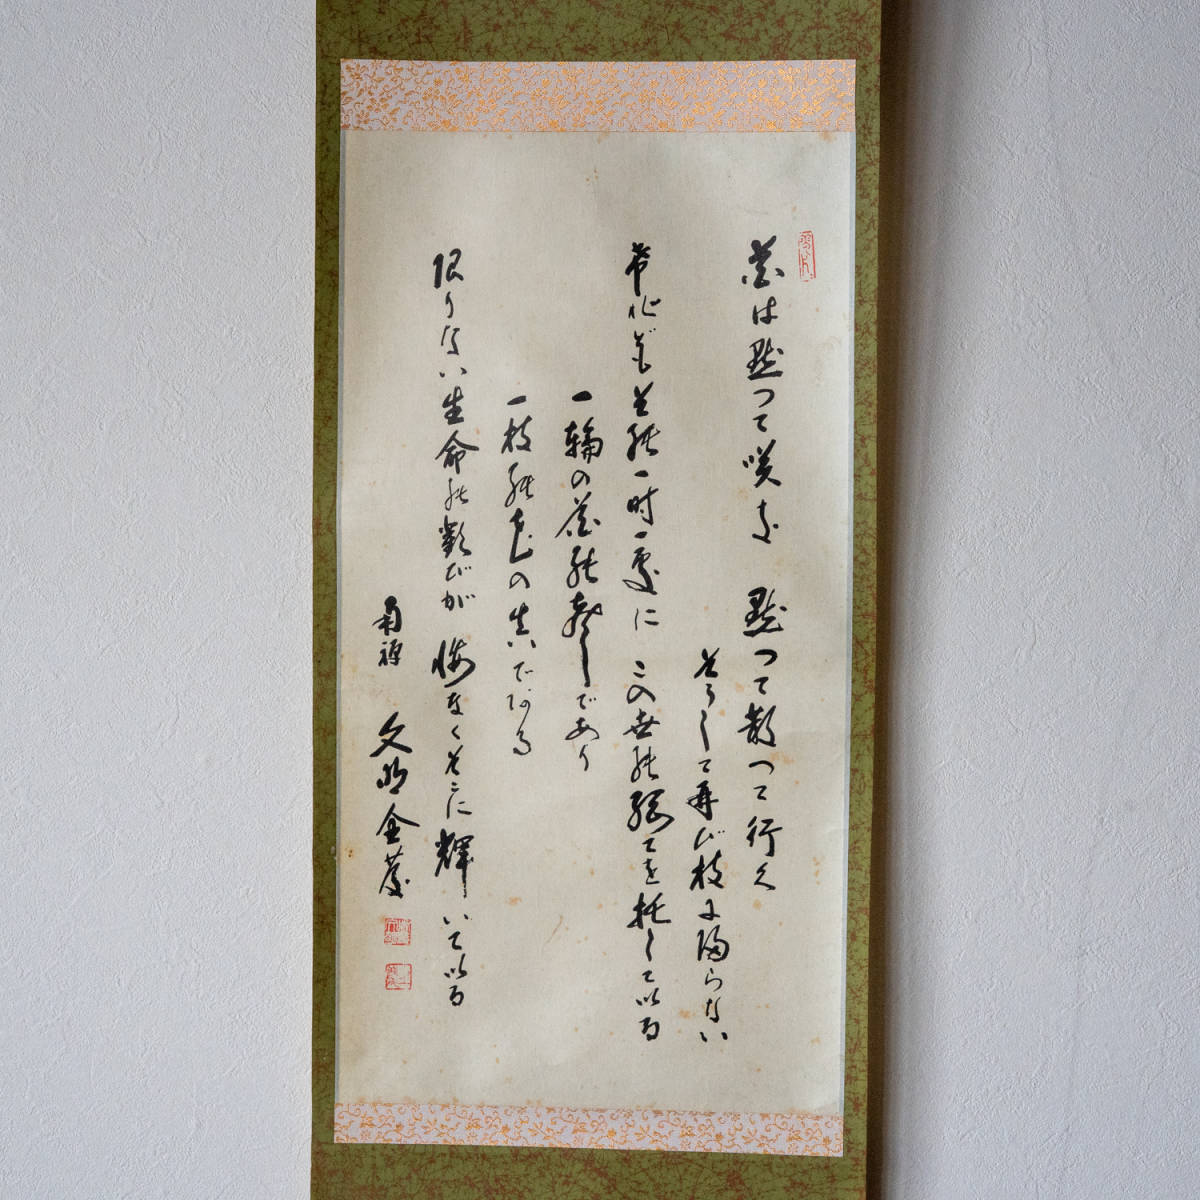 花は黙つて咲き　黙つて散つて行く
そうして再び枝に帰らない
けれどもその一時一処に　この世の総てを托している
一輪の花の声であり
一枝の花の真である
限りない生命の歓びが　悔なくそこに輝いている
南禅　文明　全慶